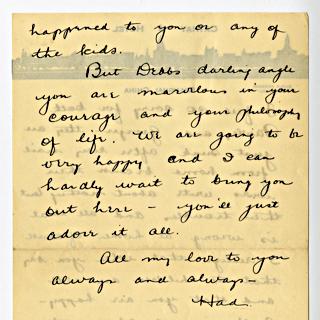 happened to you or any of
the kids.
But Debbs darling angle
you are marvelous in your
courage and your philosophy
of life. We are going to be
very happy and I can
hardly wait to bring you
out here – you'll just
adore it all.
All my love to you
always and always –
Had